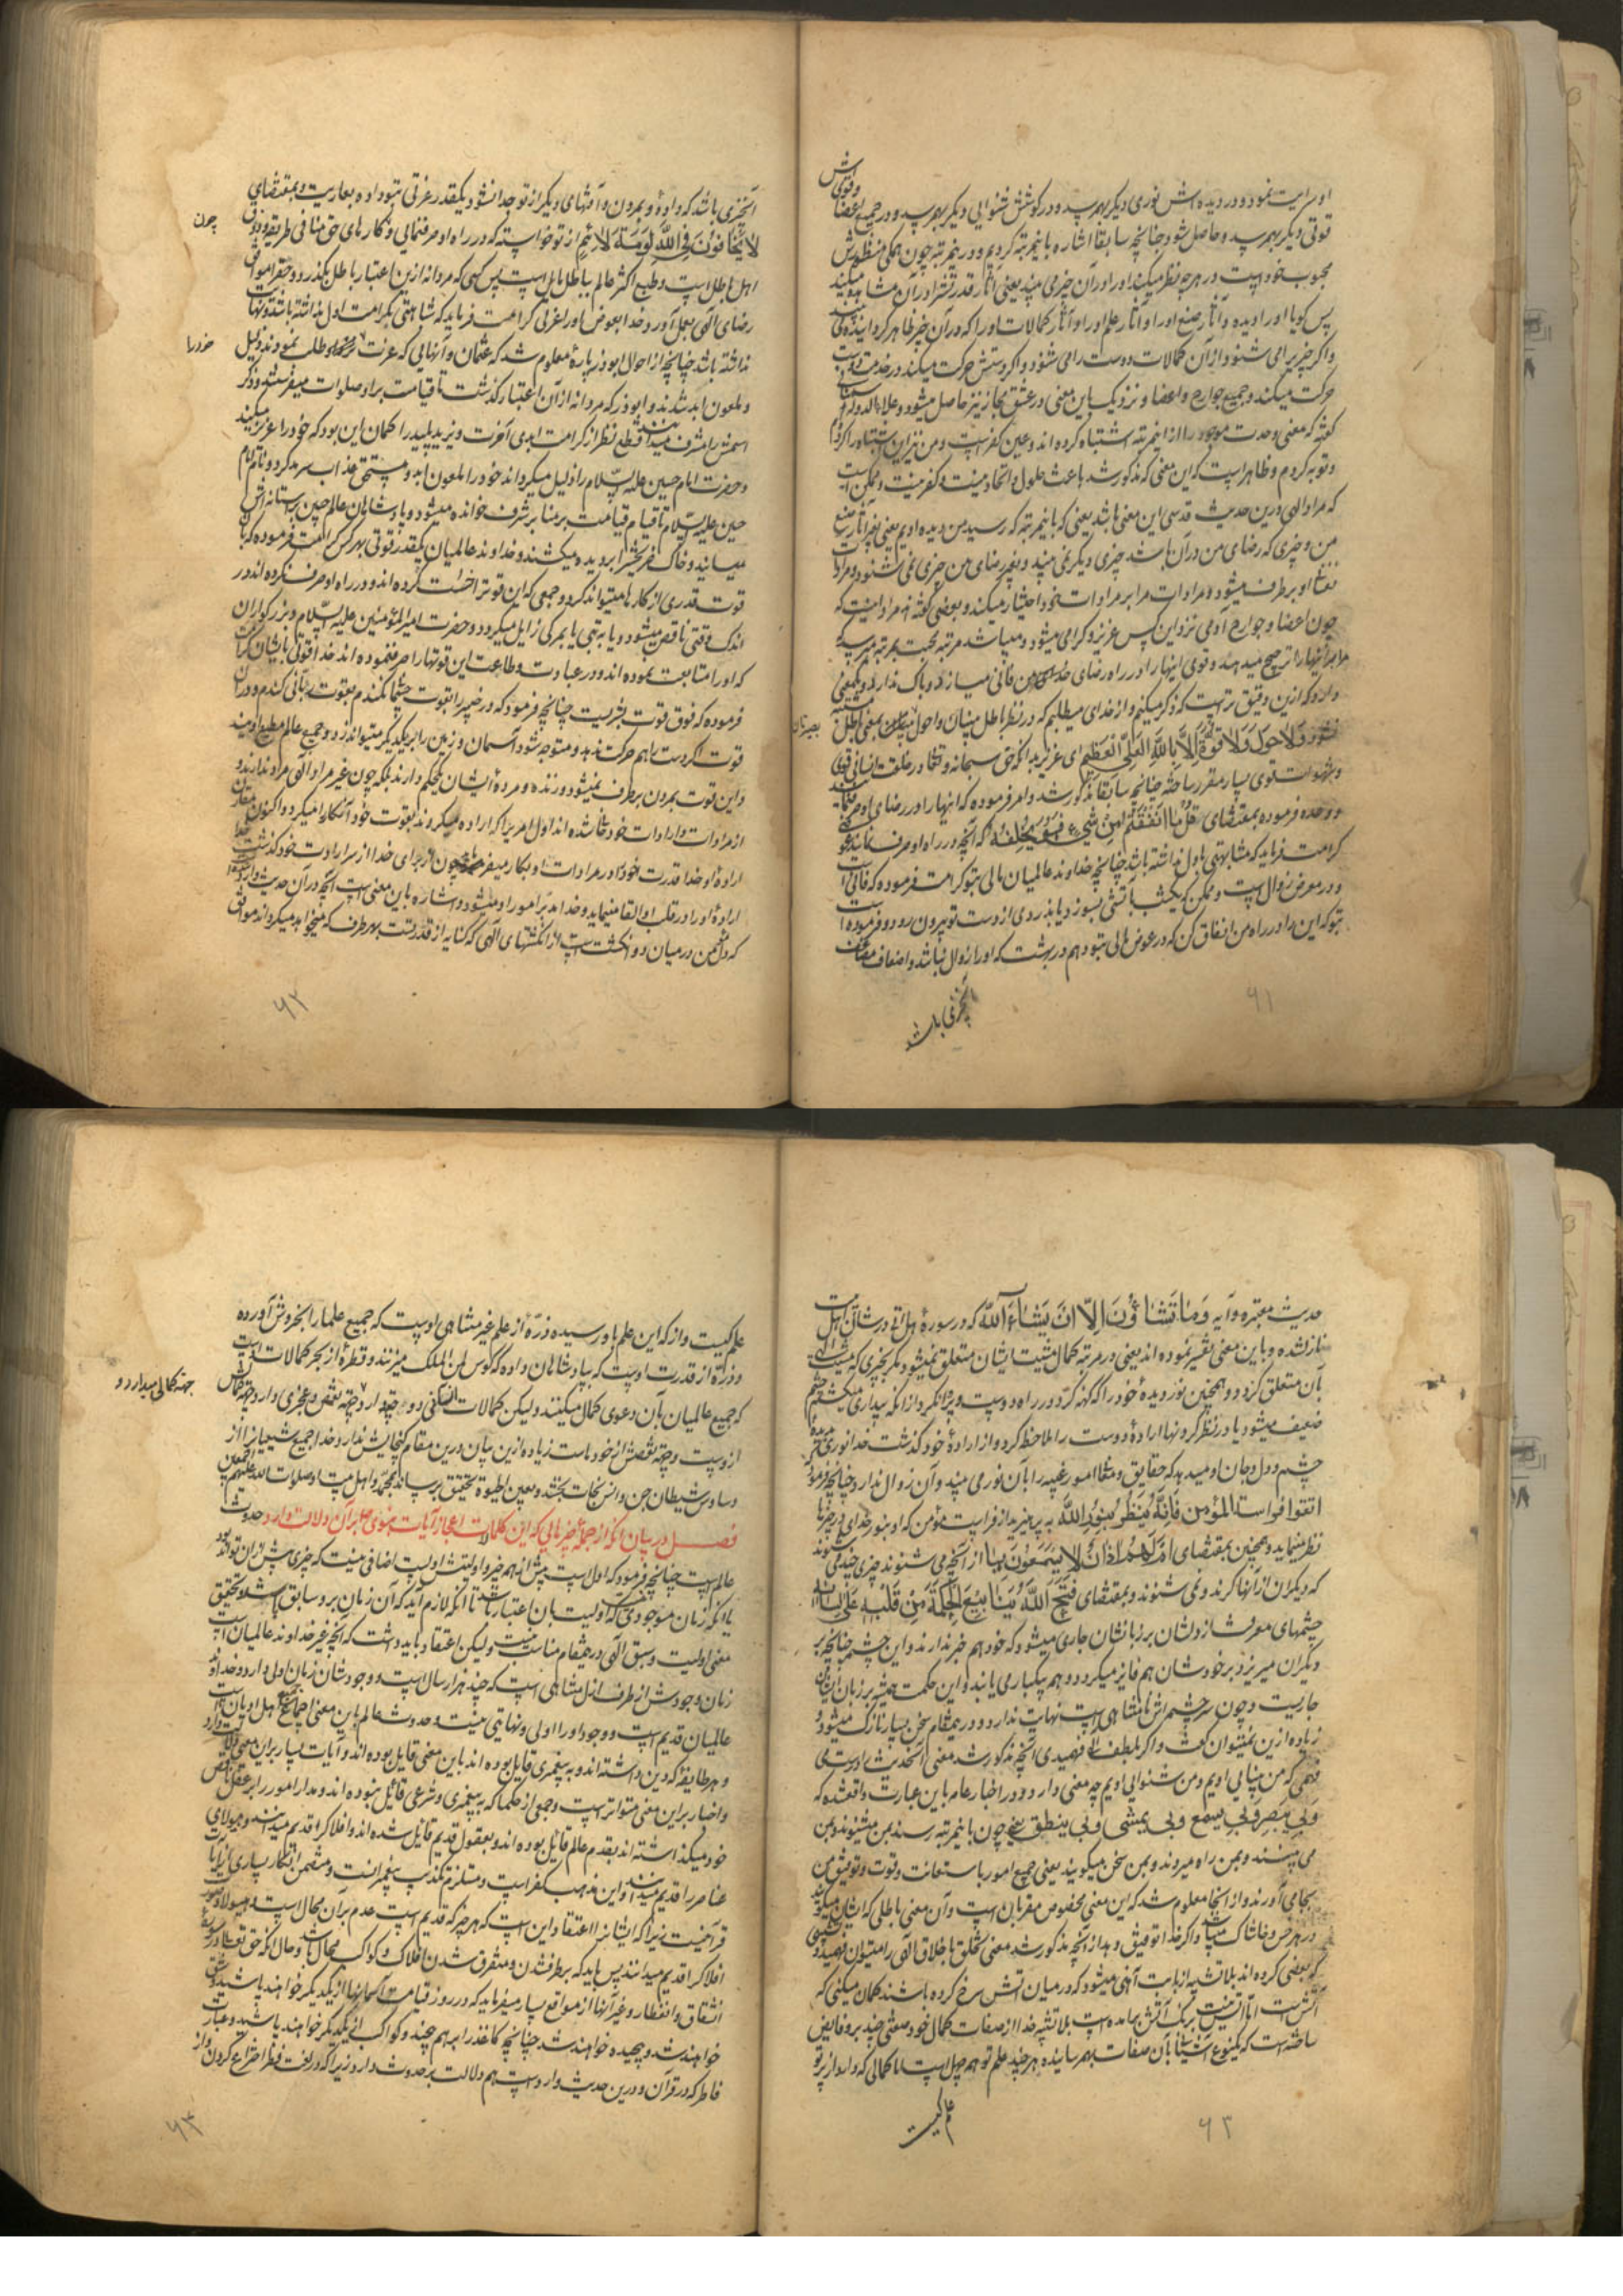 او سرایت نمود و در دیده اش نوری دیگر بهم رسید و در گوشش شنوایی دیگر بهم رسید و در جمیع اعضا و قوتش
قوتی دیگر بهم رسید و حاصل شود چنانچه سابقا اشاره باینمرتبه کردیم و در ینمرتبه چون همگی منظورش
محبوب خود است در هر چه نظر میکند او را در آن چیز می بیند یعنی آثار قدرتش را در آن مشاهده میکند
پس گویا او را دیده و آثار صنع او را و آثار علم او را و آثار کمالات او را که در آن چیز ظاهر گردانیده می بیند
و اگر چیزی می شنود از آن کمالات دوست را می شنود و اگر دستش حرکت میکند در خدمت دوست
حرکت میکند و جمیع جوارح و اعضا و نزدیک باین معنی در عشق مجاز نیز حاصل میشود و علاء الدوله سمنانی
گفته که معنی وحدت موجود را از اینمرتبه اشتباه کرده اند و عین کفر است و من نیز این اشتباه را کردم
و توبه کردم و ظاهر است که این معنی که مذکور شد باعث حلول و اتحاد نیست و کفر نیست و ممکن است
که مراد الهی درین حدیث قدسی این معنی باشد یعنی که باینمرتبه که رسید من دیده اویم یعنی بغیر آثار صنع
من و چیزی که رضای من در آن باشد چیزی دیگر نمی بیند و بغیر رضای من چیزی نمی شنود و مرادات
او برطرف میشود و مرادات مرا بر مرادات خود اختیار میکند و بعضی گفته اند مراد اینست که
چون اعضا و جوارح آدمی نزد این کس عزیز و گرامی میشود و میباشد مرتبه محبت بمرتبه میرسد
مرا بر آنها را ترجیح میدهد و قوی اینها را در راه رضای من فانی میسازد و باک ندارد و یکمعنی
دارد که ازین دقیق تر است که ذکر میکنم و از خدای میطلبم که در نظر باطل بینان و احول بصیرتان بمعنی باطل مشتبه
نشود وَلَا حَوْلَ وَلَا قُوَّةَ إِلَّا بِاللَّهِ الْعَلِیِّ الْعَظِیمِ ای عزیز بدانکه حق سبحانه و تعالی در خلقت انسانی قوی
و شهوات قوی بسیار مقرر ساخته چنانچه سابقا مذکور شد و امر فرموده که اینها را در رضای او صرف نمایند
و وعده فرموده بمقتضای قُلْ مَا أَنْفَقْتُمْ مِنْ شَيْءٍ فَهُوَ يُخْلِفُهُ که آنچه در راه او صرف نمایند عوضی
کرامت فرماید که مشابهتی باول نداشته باشد چنانچه خداوند عالمیان مالی بتو کرامت فرموده که فانی است
و در معرض زوال است و ممکن که یکشب بآتشی بسوزد یا بدزدی از دست تو بیرون رود و فرموده است
بتو که این را در راه من انفاق کن که در عوض مالی بتو دهم در بهشت که او را زوال نباشد و اضعاف مضاعف
آنچیزی باشد
۶۱
بصیرتان
آنچیزی باشد که دادۀ و بمردن و آفتهای دیگر از تو جدا نشود دیگر قدر عزتی بتو داده بعاریت و بمقتضای
لَا يَخَافُونَ فِي اللَّهِ لَوْمَةَ لَائِمٍ از تو خواسته که در راه او صرف نمایی و کارهای حق منافی طریقه و ذوق
اهل باطل است و طبع اکثر عالم بباطل مایل است پس کسی که مردانه ازین اعتبار باطل بگذرد و حقرا موافق
رضای الهی بعمل آورد خدا بعوض او را عزتی کرامت فرماید که مشابهتی بکرامت اول نداشته باشد و نهایت
نداشته باشد چنانچه از احوال ابوذر پاره معلوم شد که عثمان و آنهایی که عزت خود را طلب نمودند ذلیل
و ملعون ابد شدند و ابوذر که مردانه از آن اعتبار گذشت تا قیامت بر او صلوات میفرستند و ذکر
اسمش را شرف میدانند قطع نظر از کرامت ابدی آخرت و یزید پلید را گمان این بود که خود را عزیز میکند
و حضرت امام حسین علیه السّلام را ذلیل میگرداند خود را ملعون ابد و مستحق عذاب سرمد کرد و نام امام
حسین علیه السّلام تا قیام قیامت بر منابر بشرف خوانده میشود و پادشاهان عالم جبین بر ستانه اش
میسایند و خاک ضریحش را بر دیده میکشند و خداوند عالمیان یکقدر قوتی بهر کس کرامت فرموده که بآن
قوت قدری از کارها میتواند کرد و جمعی که این قوت را خسّت کرده اند و در راه او صرف نکرده اند در
اندک وقتی ناقص میشود و یا به تبی یا بمرگی زایل میگردد و حضرت امیر المؤمنین علیه السّلام و بزرگواران
که او را متابعت نموده اند و در عبادت و طاعت این قوتها را صرف نموده اند خدا قوتی بایشان کرامت
فرموده که فوق قوت بشریست چنانچه فرمود که در خیبر را بقوت جسمانی نکندم بقوت ربّانی کندم و در آن
قوت اگر دست را هم حرکت ندهد و متوجه شود آسمان و زمین را بر یکدیگر میتواند زد و جمیع عالم مطیع اویند
و این قوت بمردن برطرف نمیشود و زنده و مرده ایشان یکحکم دارند بلکه چون غیر مراد الهی مراد ندارند و
از مرادات و ارادات خود فانی شده اند اول امریرا که اراده میکردند بقوت خود آنکار را میکرد و اکنون مقارن
ارادۀ او خدا قدرت خود را در مرادات او بکار میفرماید چون از برای خدا از سر ارادت خود گذشت خدا
ارادۀ او را در قلب او القا مینماید و خدا مدبّر امور او میشود و اشاره باین معنی است آنچه در آن حدیث وارد است
که دل مؤمن در میان دو انگشت است از انگشتهای الهی که کنایه از قدرتست بهر طرف که میخواهد میگرداند موافق
چون
خود را
۶۲
حدیث معتبره و آیه وَمَا تَشَاؤُنَ إِلَّا أَنْ يَشَاءَ اللَّهُ که در سورۀ هل اتی در شأن اهل بیت
نازل شده و باین معنی تفسیر نموده اند یعنی در مرتبه کمال مشیت ایشان متعلق نمیشود مگر بچیزی که مشیت الهی
بآن متعلق گردد و همچنین نور دیدۀ خود را که کهنه کرد در راه دوست و پروا نکرد از آنکه بیداری میکشم چشم
ضعیف میشود یا در نظر کردنها ارادۀ دوست را ملاحظه کرد و از ارادۀ خود گذشت خدا نوری بدیدۀ
چشم و دل و جان او میدهد که حقایق و امور غیبیه را بآن نور می بیند و آن زوال ندارد چنانچه فرمود
اتقوا فراسة المؤمن فَإِنَّهُ يَنْظُرُ بِنُورِ اللَّهِ به پرهیزید از فراست مؤمن که او بنور خدای در چیزها
نظر مینماید و همچنین بمقتضای أَمْ لَهُمْ آذَانٌ لَا يَسْمَعُونَ بِهَا از آنچه می شنوند چیزی چند می شنوند
که دیگران از آنها کرند و نمی شنوند و بمقتضای فَتَحَ اللَّهُ يَنَابِيعَ الْحِكْمَةِ مِنْ قَلْبِهِ عَلَى لِسَانِهِ
چشمهای معرفت از دلشان بر زبانشان جاری میشود که خود هم خبر ندارند و این چشمه چنانچه بر
دیگران میریزد بر خودشان هم فایز میگردد و هم یکباری یابند و این حکمت همیشه بر زبان ایشان
جاریست و چون سرچشمه اش نامتناهی است نهایت ندارد و در ینمقام سخن بسیار نازک میشود و
زیاده ازین نمیتوان گفت و اگر بلطف الهی فهمیدی آنچه مذکور شد معنی این حدیث را درست می
فهمی که من بینایی اویم و من شنوایی اویم چه معنی دارد و در اخبار عام باین عبارت واقعشده که
وَبِي يُبْصِرُ وَبِي يَسْمَعُ وبی یمشی وبی ینطق یعنی چون باینمرتبه رسند بمن میشنوند و بمن
می بینند و بمن راه میروند و بمن سخن میگویند یعنی جمیع امور باستعانت و قوت و توفیق من
بجا می آورند و از اینجا معلوم شد که این معنی مخصوص مقربان است و آن معنی باطلی که ایشان میگویند
در هر خس و خاشاک میباشد و اگر خدا توفیق دهد از آنچه مذکور شد معنی تخلّق باخلاق الهی را میتوان فهمید و تشبیهی
که بعضی کرده اند بلا تشبیه از بابت آهنی میشود که در میان آتش سرخ کرده باشند گمان میکنی که
آتش است امّا آتش نیست برنگ آتش برآمده است بلا تشبیه خدا از صفات کمال خود صفتی چند بر او فایض
ساخته است که یکنوع آشنایی بآن صفات بهم رسانیده هر چند علم تو هم جهل است اما کمالی که دارد از پرتو
علم کیست
۶۳
علم کیست و از که این علم باو رسیده و ذرّۀ از علم غیر متناهی اوست که جمیع علما را بخروش آورده
و ذرّۀ از قدرت اوست که بپادشاهان داده که کوس لمن الملک میزنند و قطرۀ از بحر کمالات اوست
که جمیع عالمیان بآن دعوی کمال میکنند و لیکن کمالات انسانی دو جهة دارد جهة نقص و عجزی دارد و جهة کمالش
از وست و جهة نقصش از خود است زیاده ازین بیان درین مقام گنجایش ندارد خدا جمیع شیعیانرا از
وساوس شیطان جن و انس نجات بخشد و بعین الحیوة تحقیق برساند بمحمّد و اهل بیته صلوات الله علیهم اجمعین
فصـــل در بیان آنکه از جمله چیزهایی که این کلمات اعجاز آیات نبوی ص بر آن دلالت دارد حدوث
عالم است چنانچه فرمود که اول است پیش از همه چیز و اولیتش اولیت اضافی نیست که چیزی پیش از آن تواند بود
یا آنکه زمان موجودی باشد که اولیت بآن اعتبار باشد تا آنکه لازم آید که آن زمان بر او سابق باشد و تحقیق
معنی اولیت و سبق الهی در ینمقام مناسب نیست ولیکن اعتقاد باید داشت که آنچه غیر خداوند عالمیان است
زمان وجودش از طرف ازل متناهی است که چند هزار سال است و وجودشان زمان اول دارد و خداوند
عالمیان قدیم است و وجود او را اولی و نهایتی نیست و حدوث عالم باین معنی اجماعی جمیع اهل ادیان است
و هر طایفه که دین داشته اند و به پیغمبری قایل بوده اند باین معنی قایل بوده اند و آیات بسیار بر این معنی دلالت دارد
و اخبار بر این معنی متواتر است و جمعی از حکما که به پیغمبری و شرعی قائل نبوده اند و مدار امور را بر عقل ناقص
خود میگذاشته اند بقدم عالم قائل بوده اند و بعقول قدیم قائل شده اند و افلاک را قدیم میدانند و هیولای
عناصر را قدیم میدانند و این مذهب کفر است و مستلزم تکذیب پیغمبرانست و متضمن انکار بسیاری از آیات
قرآنیست زیرا که ایشانرا اعتقاد این است که هر چیز که قدیم است عدم بر آن محال است و هیولا و صور
افلاک را قدیم میدانند پس باید که برطرف شدن و متفرق شدن افلاک و کواکب محال باشد و حال آنکه حق تعالی در سورۀ
انشقاق و انفطار و غیر آنها از مواقع بسیار میفرماید که در روز قیامت آسمانها از یکدیگر خواهند پاشید و شق
خواهند شد و پیچیده خواهند شد چنانچه کاغذ را بر هم پیچند و کواکب از یکدیگر خواهند پاشید و عبارت
فاطر که در قرآن و درین حدیث وارد است هم دلالت بر حدوث دارد زیرا که در لغت فطر اختراع کردن و از
جهة کمالی میدارد و
۶۴